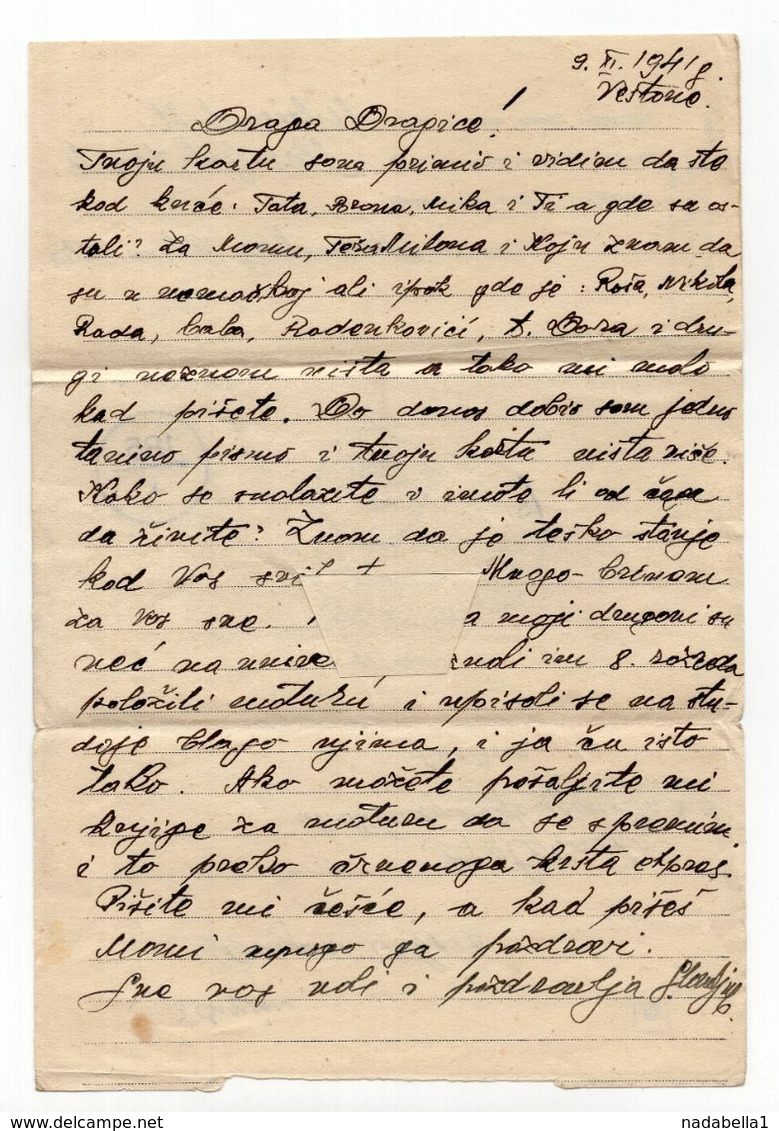 9. XI. 1941 g.
Vestone.
Draga Dragice!
Tvoju kartu sam primio i vidim da ste
kod kuće. Tata, Brana, Mika i Ti a gde su os-
tali? Za Momu, Tošu Milana i Koju znam da
su u nemačkoj ali ipak gde je: Rosa, Nikola,
Rada, baba, Radenkovići, t. Dara i dru-
gi neznam ništa a tako mi malo
kad pišete. Do danas dobio sam jedno
tatino pismo i tvoju kartu ništa više.
Kako se snalazite i imate li od čega
da živite? Znam da je teško stanje
kod Vas svi Mnogo brinem
za vas sve. a moji drugovi su
već na unive dali im 8. razreda
položili maturu i upisali se na stu-
dije blago njima, i ja ću isto
tako. Ako možete pošaljite mi
knjige za maturu da se spremim
i to preko crvenoga krsta
Pišite mi češće, a kad pišeš
Momi mnogo ga pozdravi.
Sve vas voli i pozdravlja
nadabella1